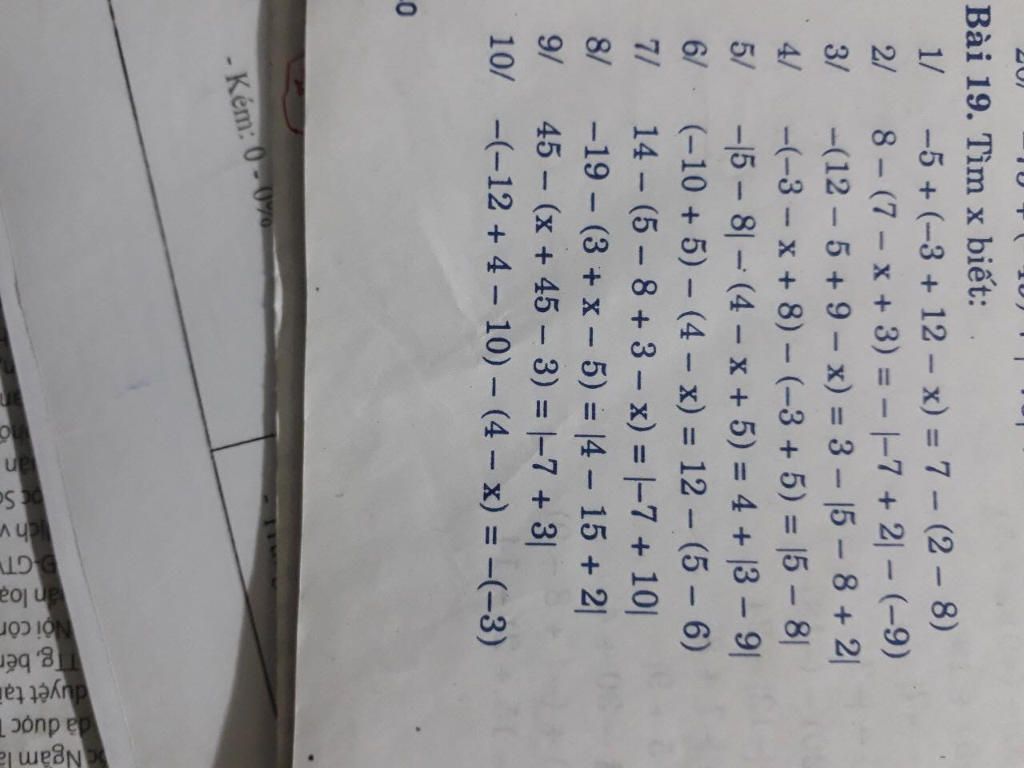 Bài 19. Tìm x biết:
1/ −5 + (−3 + 12 − x) = 7 − (2 − 8)
2/ 8 − (7 − x + 3) = − |−7 + 2| − (−9)
3/ −(12 − 5 + 9 − x) = 3 − |5 − 8 + 2|
4/ −(−3 − x + 8) − (−3 + 5) = |5 − 8|
5/ −|5 − 8| − (4 − x + 5) = 4 + |3 − 9|
6/ (−10 + 5) − (4 − x) = 12 − (5 − 6)
7/ 14 − (5 − 8 + 3 − x) = |−7 + 10|
8/ −19 − (3 + x − 5) = |4 − 15 + 2|
9/ 45 − (x + 45 − 3) = |−7 + 3|
10/ −(−12 + 4 − 10) − (4 − x) = −(−3)
- Kém: 0 - 0%
duyệt tại
đã được